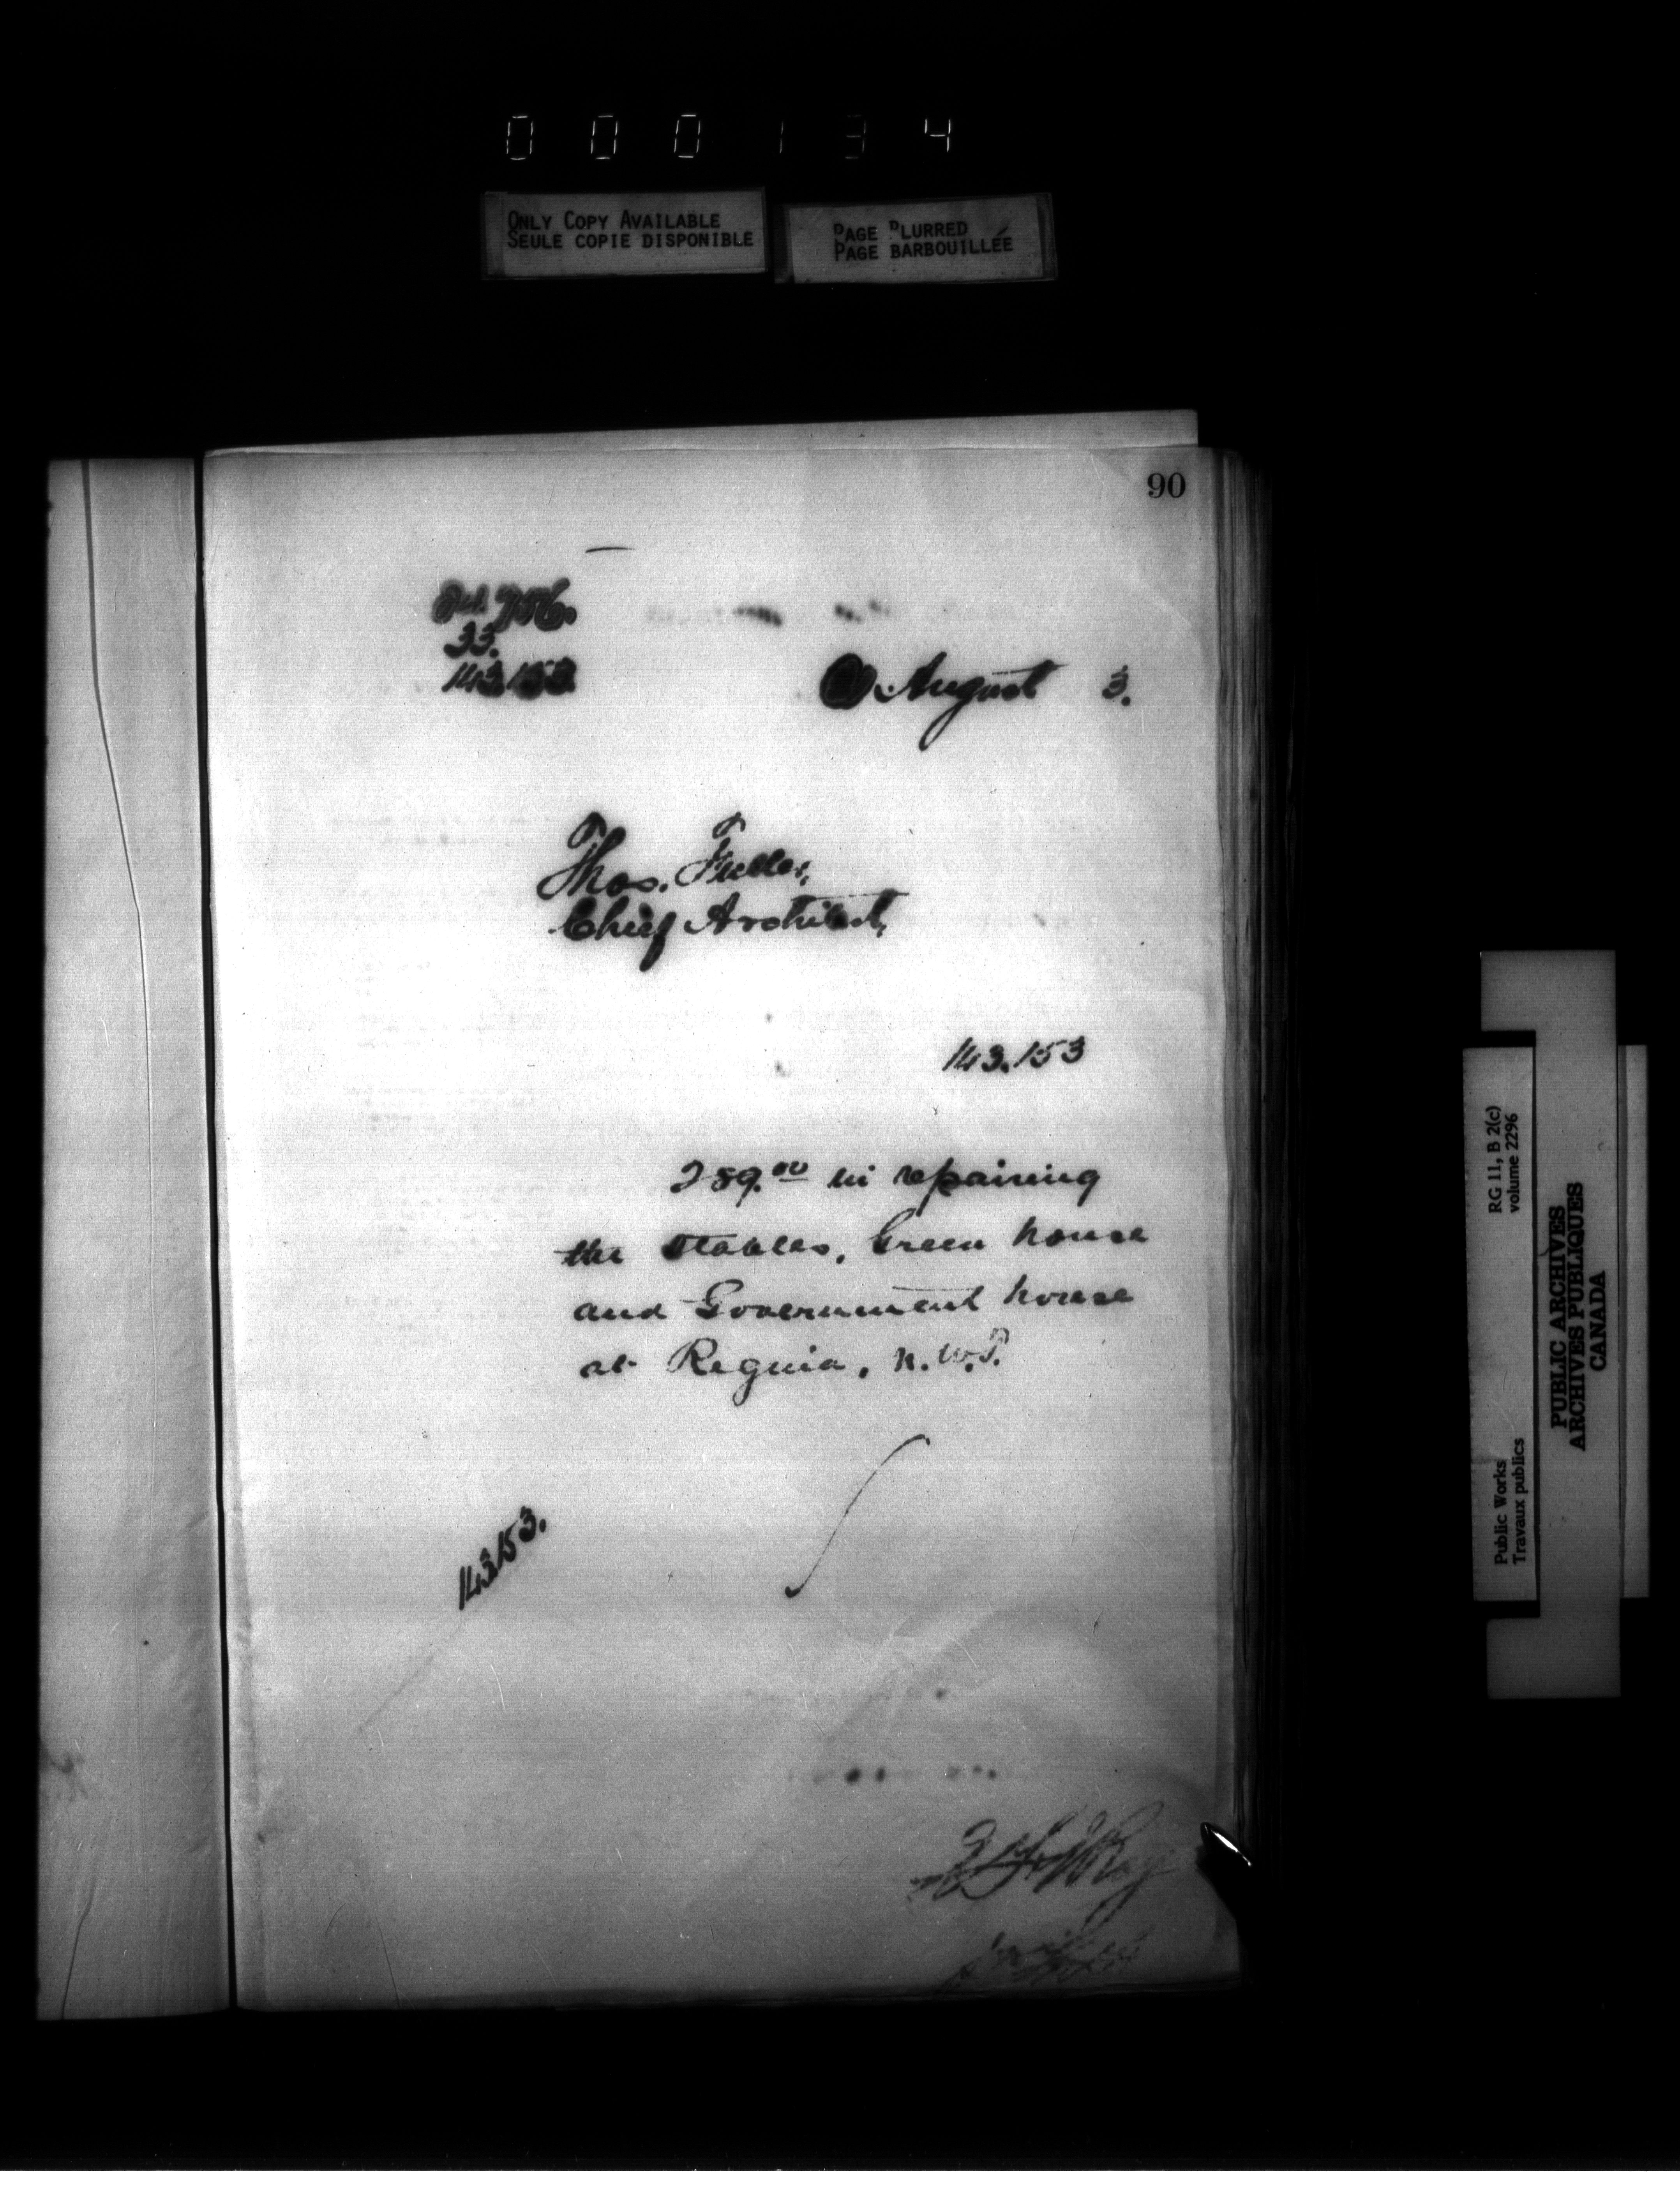 0 0 0 1 3 4
ONLY COPY AVAILABLE
SEULE COPIE DISPONIBLE
PAGE BLURRED
PAGE BARBOUILLÉE
90
33.
143.153
August 3.
Thos. Fuller,
Chief Architect,
143.153
289.00 in repairing
the stables, Green house
and Government house
at Regina, N.W.T.
143.153.
RG 11, B 2(c)
volume 2296
Public Works
Travaux publics
PUBLIC ARCHIVES
ARCHIVES PUBLIQUES
CANADA